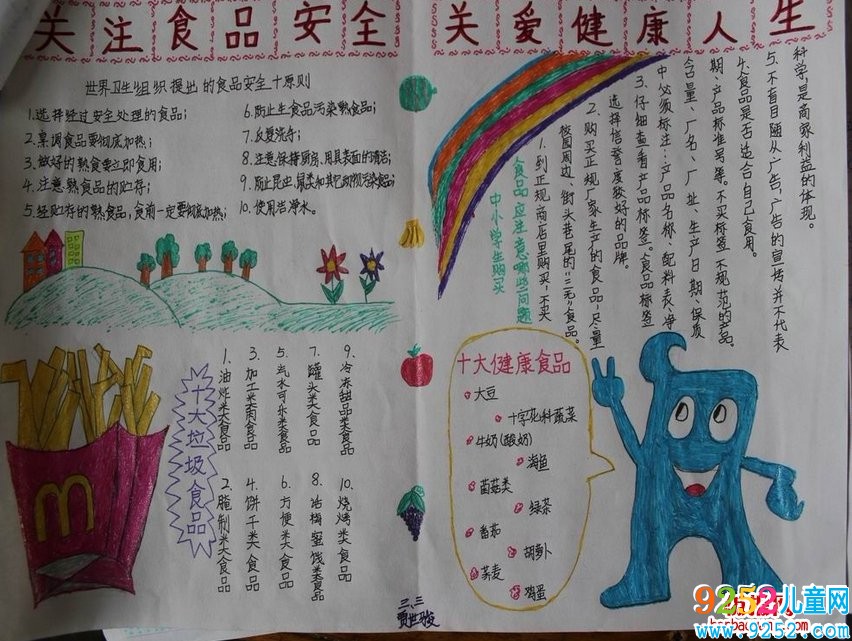 关注食品安全 关爱健康人生
世界卫生组织提出的食品安全十原则
1.选择经过安全处理的食品;
2.烹调食品要彻底加热;
3.做好的熟食要立即食用;
4.注意熟食品的贮存;
5.经贮存的熟食品,食前一定要彻底加热;
6.防止生食品污染熟食品;
7.反复洗手;
8.注意保持厨房、用具表面的清洁;
9.防止昆虫、鼠类和其它动物污染食品;
10.使用洁净水。
中小学生购买
食品应注意哪些问题
1.到正规商店里购买,不买
校园周边、街头巷尾的"三无"食品。
2.购买正规厂家生产的食品,尽量
选择信誉度较好的品牌。
3.仔细查看产品标签。食品标签
中必须标注:产品名称、配料表、净
含量、厂名、厂址、生产日期、保质
期、产品标准号等。不买标签不规范的产品。
4.食品是否适合自己食用。
5.不盲目随从广告,广告的宣传并不代表
科学,是商家利益的体现。
十大垃圾食品
1.油炸类食品
2.腌制类食品
3.加工类肉食品
4.饼干类食品
5.汽水可乐类食品
6.方便类食品
7.罐头类食品
8.话梅蜜饯类食品
9.冷冻甜品类食品
10.烧烤类食品
十大健康食品
大豆
十字花科蔬菜
牛奶(酸奶)
海鱼
菌菇类
绿茶
番茄
胡萝卜
荞麦
鸡蛋
三、三
贾世骏
9252儿童网
www.9252.com